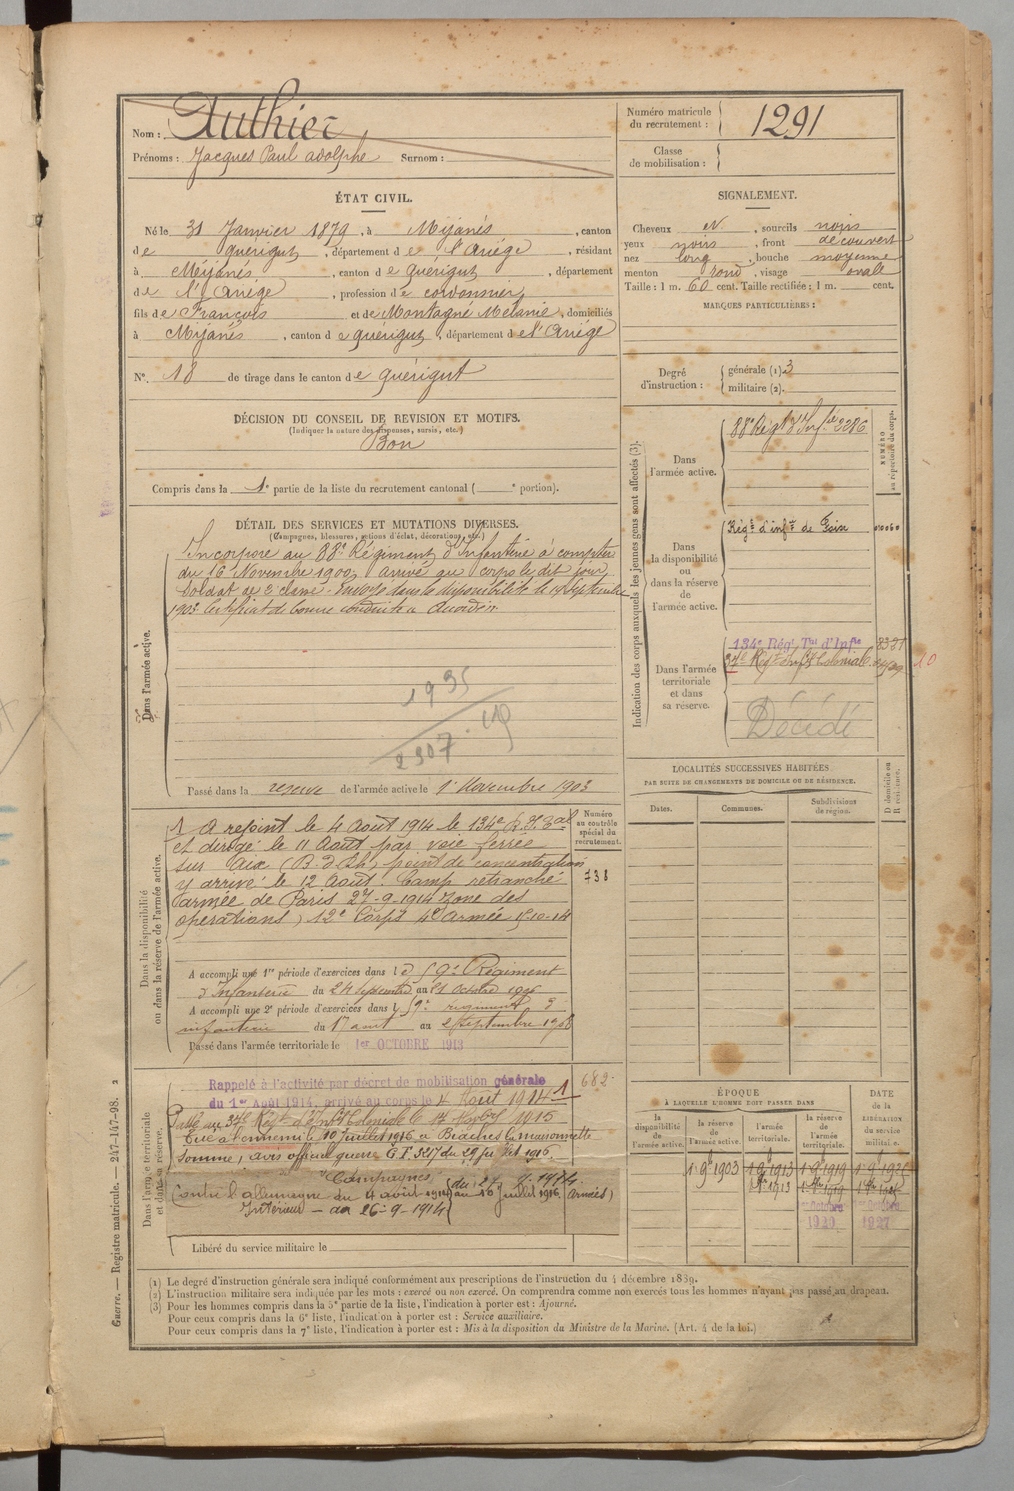 Nom : Authier
Prénoms : Jacques Paul adolphe Surnom :
Numéro matricule du recrutement : 1291
Classe de mobilisation :
ÉTAT CIVIL.
Né le 31 Janvier 1879, à Mijanès, canton
de quérigut, département de l'Ariége, résidant
à Mijanès, canton de quérigut, département
de l'Ariége, profession de cordonnier,
fils de François et de Montagné Mélanie, domiciliés
à Mijanès, canton de quérigut, département de l'Ariége
N°. 18 de tirage dans le canton de quérigut
SIGNALEMENT.
Cheveux N, sourcils noirs
yeux noirs, front découvert
nez long, bouche moyenne
menton rond, visage ovale
Taille : 1 m. 60 cent. Taille rectifiée : 1 m. cent.
MARQUES PARTICULIÈRES :
Degré d'instruction : générale (1) 3
militaire (2).
DÉCISION DU CONSEIL DE REVISION ET MOTIFS.
(Indiquer la nature des dispenses, sursis, etc.)
Bon
Compris dans la 1e partie de la liste du recrutement cantonal ( e portion).
DÉTAIL DES SERVICES ET MUTATIONS DIVERSES.
(Campagnes, blessures, actions d'éclat, décorations, etc.)
Dans l'armée active.
Incorporé au 88e Régiment d'Infanterie à compter
du 16 Novembre 1900, Arrivé au corps le dit jour,
Soldat de 2e classe. Envoyé dans la disponibilité le 19 Septembre
1903. Certificat de bonne conduite
1935
2307
Passé dans la réserve de l'armée active le 1er Novembre 1903
Indication des corps auxquels les jeunes gens sont affectés (3).
NUMÉRO au répertoire du corps.
Dans l'armée active.
88e Régt d'Infie 2286
Dans la disponibilité ou dans la réserve de l'armée active.
Régt d'infie de Foix
Dans l'armée territoriale et dans sa réserve.
134e Régt Tal d'Infie
37e Régt d'Infie Coloniale
10
Décédé
LOCALITÉS SUCCESSIVES HABITÉES
PAR SUITE DE CHANGEMENTS DE DOMICILE OU DE RÉSIDENCE.
D domicile ou R résidence.
Dates. Communes. Subdivisions de région.
Numéro au contrôle spécial du recrutement.
738
Dans la disponibilité ou dans la réserve de l'armée active.
1 A rejoint le 4 Août 1914 le 134e R.I.Tal
et dirigé le 11 Août par voie ferrée
sur Aix (B. d Rh) point de concentration
y arrivé le 12 Août. Camp retranché
(armée de Paris 27-9-1914 zone des
opérations) 12e Corps 4e Armée
A accompli une 1re période d'exercices dans le 59e Régiment
d'Infanterie du 24 Septembre au 21 Octobre 1906
A accompli une 2e période d'exercices dans le 59e régiment d'
infanterie du 17 août au 2 Septembre 1908
Passé dans l'armée territoriale le 1er OCTOBRE 1913
Dans l'armée territoriale et dans sa réserve.
Rappelé à l'activité par décret de mobilisation générale
du 1er Août 1914, arrivé au corps le 4 Août 1914 1
682
Passé au 37e Régt d'Infie Coloniale le 17 1915
Tué à l'ennemi le 10 Juillet 1916 à Biaches la maisonnette
Somme, avis officiel guerre du 29 Juillet 1916.
Campagnes
Contre l'allemagne du 4 août 1914 au 10 Juillet 1916
Intérieur — du 26-9-1914
(armées)
Libéré du service militaire le
ÉPOQUE
À LAQUELLE L'HOMME DOIT PASSER DANS
la disponibilité de l'armée active. la réserve de l'armée active. l'armée territoriale. la réserve de l'armée territoriale.
DATE de la LIBÉRATION du service militaire.
1 9b 1903 1 9b 1913 1 9b 1919
Octobre
1920 1927
(1) Le degré d'instruction générale sera indiqué conformément aux prescriptions de l'instruction du 4 décembre 1889.
(2) L'instruction militaire sera indiquée par les mots : exercé ou non exercé. On comprendra comme non exercés tous les hommes n'ayant pas passé au drapeau.
(3) Pour les hommes compris dans la 5e partie de la liste, l'indication à porter est : Ajourné.
Pour ceux compris dans la 6e liste, l'indication à porter est : Service auxiliaire.
Pour ceux compris dans la 7e liste, l'indication à porter est : Mis à la disposition du Ministre de la Marine. (Art. 4 de la loi.)
Guerre. — Registre matricule. — 247-147-98. 2